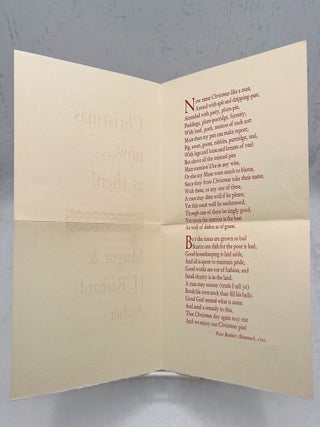 Christmas
now...
is then!
H. Richard
Archer
Now enter Christmas like a man,
Armed with spit and dripping-pan,
Attended with pasty, plum-pie,
Puddings, plum-porridge, furmity,
With beef, pork, mutton of each sort
More than my pen can make report;
Pig, swan, goose, rabbits, partridge, teal,
With legs and loins and breasts of veal:
But above all the minced pies
Must mention'd be in any wise,
Or else my Muse were much to blame,
Since they from Christmas take their name.
With these, or any one of these,
A man may dine well if he please,
Yet this must well be understood,
Though one of these be singly good,
Yet more the merrier is the best
As well of dishes as of guest.
But the times are grown so bad
Scarce one dish for the poor is had;
Good housekeeping is laid aside,
And all is spent to maintain pride,
Good works are out of fashion, and
Small charity is in the land.
A man may sooner (truth I tell ye)
Break his own neck than fill his belly.
Good God amend what is amiss
And send a remedy to this,
That Christmas day again may rise
And we enjoy our Christmas pies!
Poor Robin's Almanack, 1700.